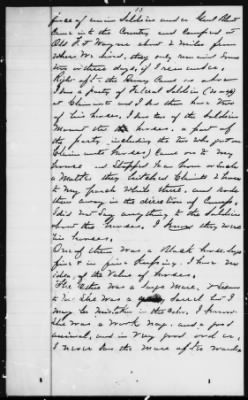 13
force of union Soldiers under Genl Blunt
Came into the Country and Camped at
Old Ft Wayne about 2 miles from
where we lived, they only remained some
two or three days, if I remember.
Right after the Army Came in above
I saw a party of Federal Soldiers
at Claimants and I saw them have two
of his horses. I saw two of the Soldiers
Mount the horses. a part of
the party, including the two who got
Claimants horses, Came on to my
house and Stopped in an hour or such
a Matter they hitched Claimts 2 horses
to my fence while there, and rode
them away in the direction of Camp.
I did not Say anything to the Soldiers
about the horses. I knew they were
his horses.
One of them was a Black horse,
five in fine I have no
idea of the Value of horses.
The other was a large Mare, seems
to me she was a Sorrel but I
may be mistaken in the Color. I know
She was a work nag, and a good
animal, and in very good order.
I never saw the mare after